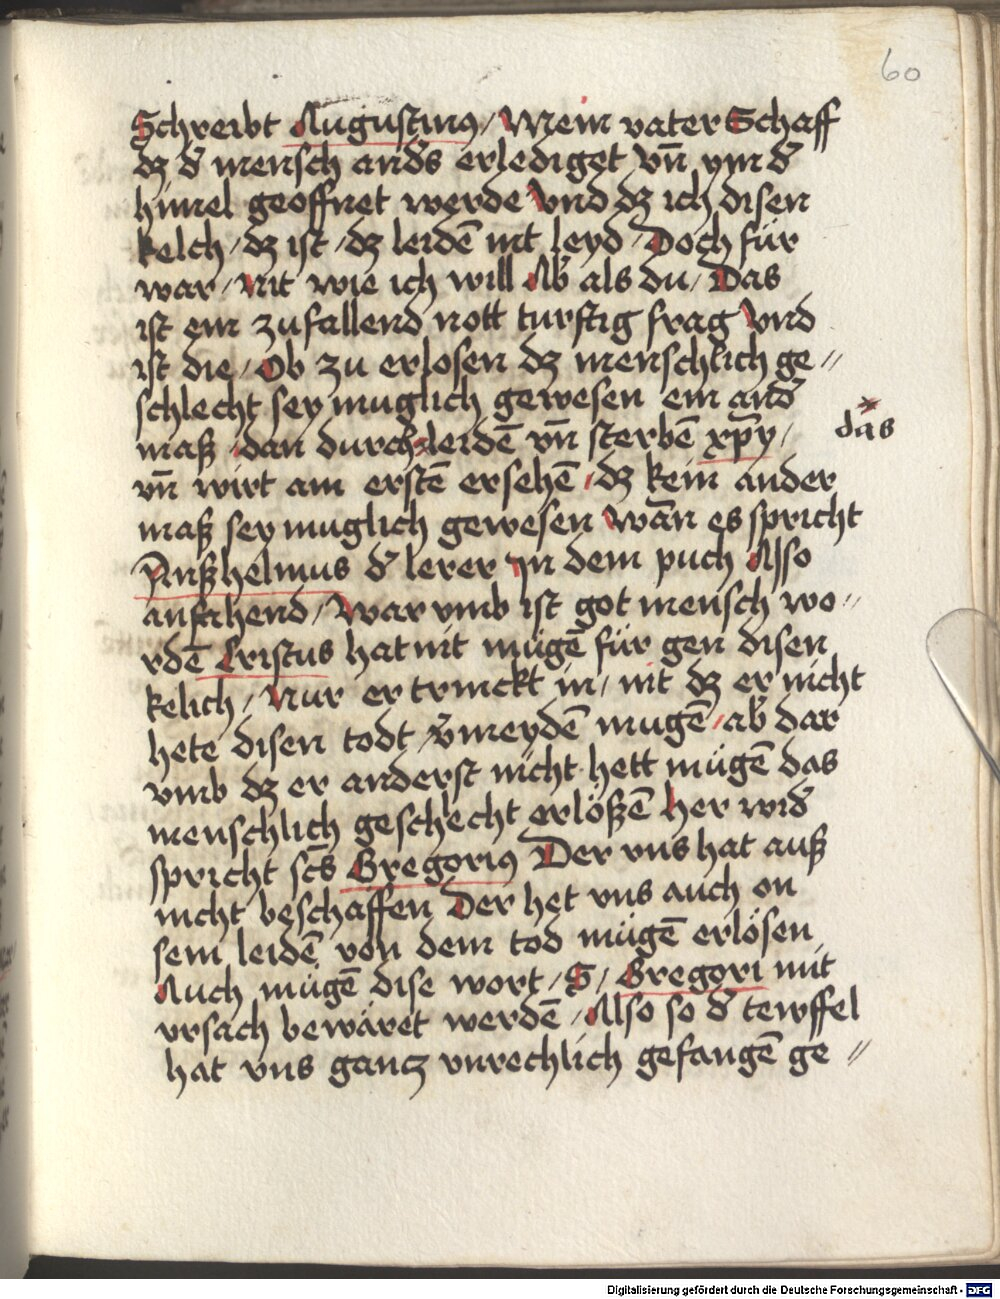 60
Schreibt Augustinꝰ / Mein vater Schaff
dz d̄ mensch and̄s erlediget vn̄ ym d̄
himel geoffnet werde Vnd dz ich disen
kelch / dz ist / dz leidē nit leyd / Doch für
war / Nit wie ich will Ab̄ als du / Das
ist ein zufallend nott turftig frag Vnd
ist die / Ob zu erlosen dz menschlich ge //
schlecht sey muglich gewesen ein and̄
maß / dan durch leidē vn̄ sterbē xp̄y /
das
vn̄ wirt am erstē ersehē / dz kein ander
maß sey muglich gewesen Wan̄ es spricht
Anßhelmus d̄ lerer Jn dem puch Also
anfahend / War vmb ist got mensch wo //
rdē Cristus hat nit mügē für gen disen
kelich / Nur er trinckt in / nit dz er nicht
hete disen todt / v̄meydē mugē / ab̄ dar
vmb dz er anderst nicht hett mügē das
menschlich geschlecht erlößē her wid̄
spricht scs̄ Gregoriꝰ Der vns hat auß
nicht beschaffen Der het vns auch on
sein leidē von dem tod mügē erlösen
Auch mügē dise wort / S / Gregori mit
vrsach bewäret werdē / Also so d̄ tewffel
hat vns gancz vnrechlich gefangē ge //
Digitalisierung gefördert durch die Deutsche Forschungsgemeinschaft - DFG